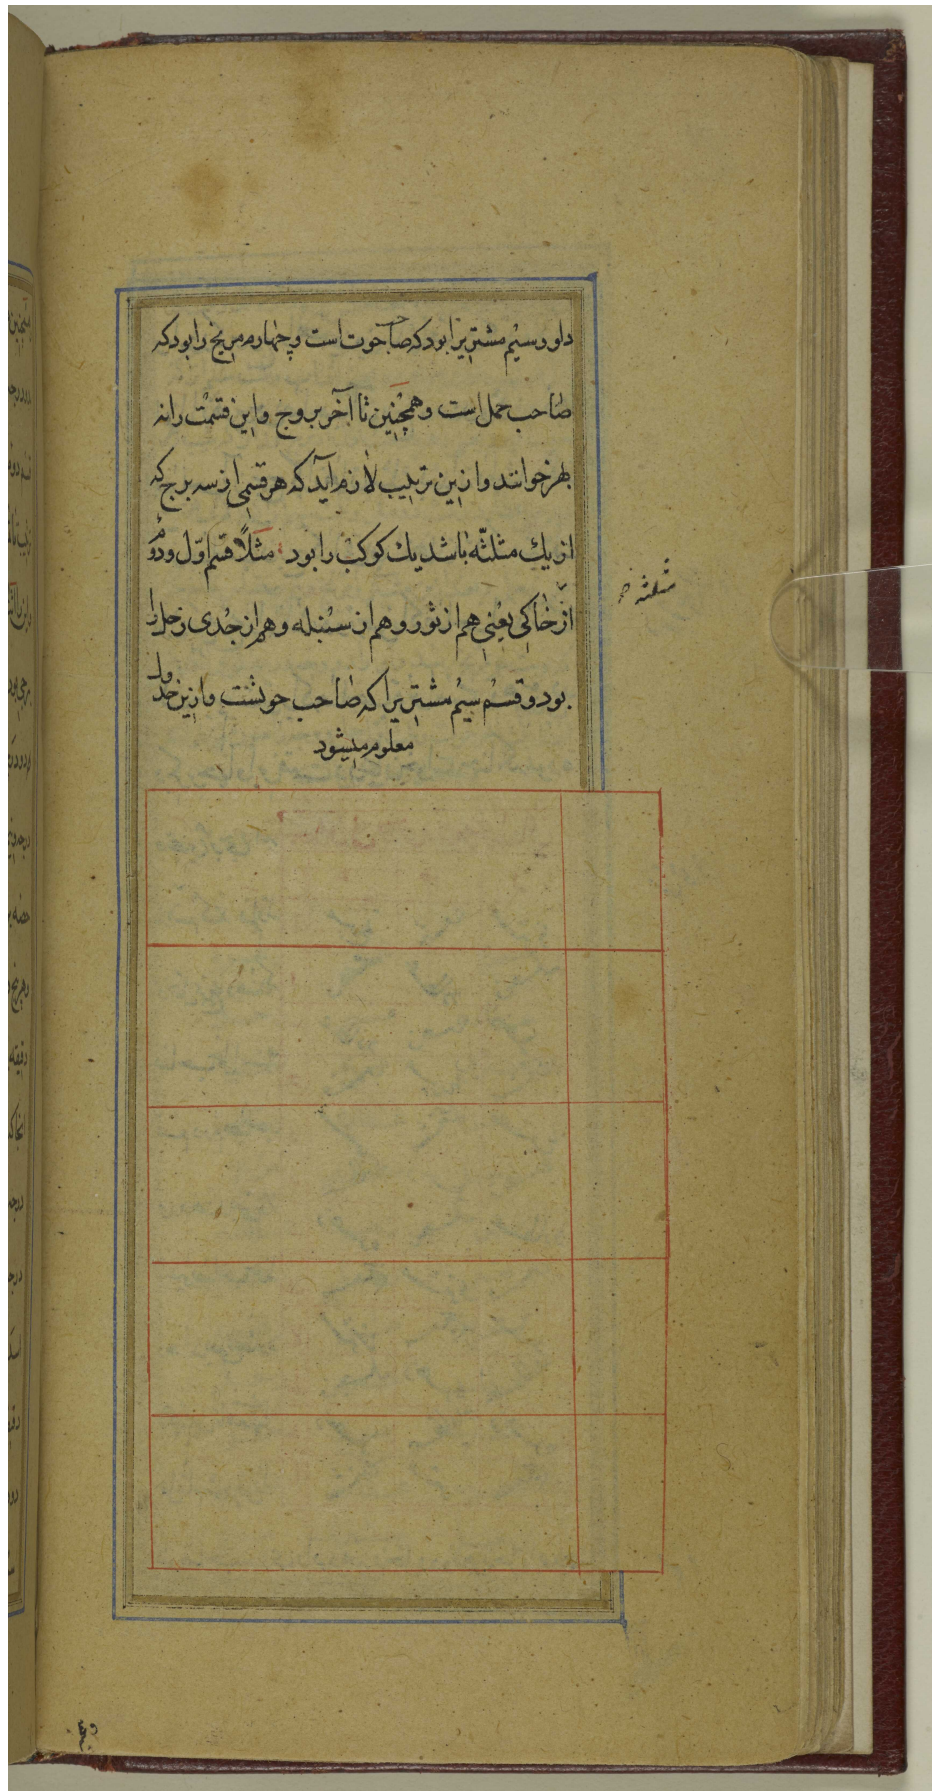 دلو و سیم مشتریرا بود که صاحب حوت است و چهارم مریخ را بود که
صاحب حمل است و همچنین تا آخر بروج و این قسمت را نه
بهر خوانند و ازین ترتیب لازم آید که هر قسمی از سه برج که
از یک مثلثه باشد یک کوکب را بود مثلاً قسم اوّل و دوم
از خاکی یعنی هم از ثور و هم از سنبله و هم از جدی زحل را
بود و قسم سیم مشتریرا که صاحب حوتست و ازین جدول
معلوم میشود
مثلثه